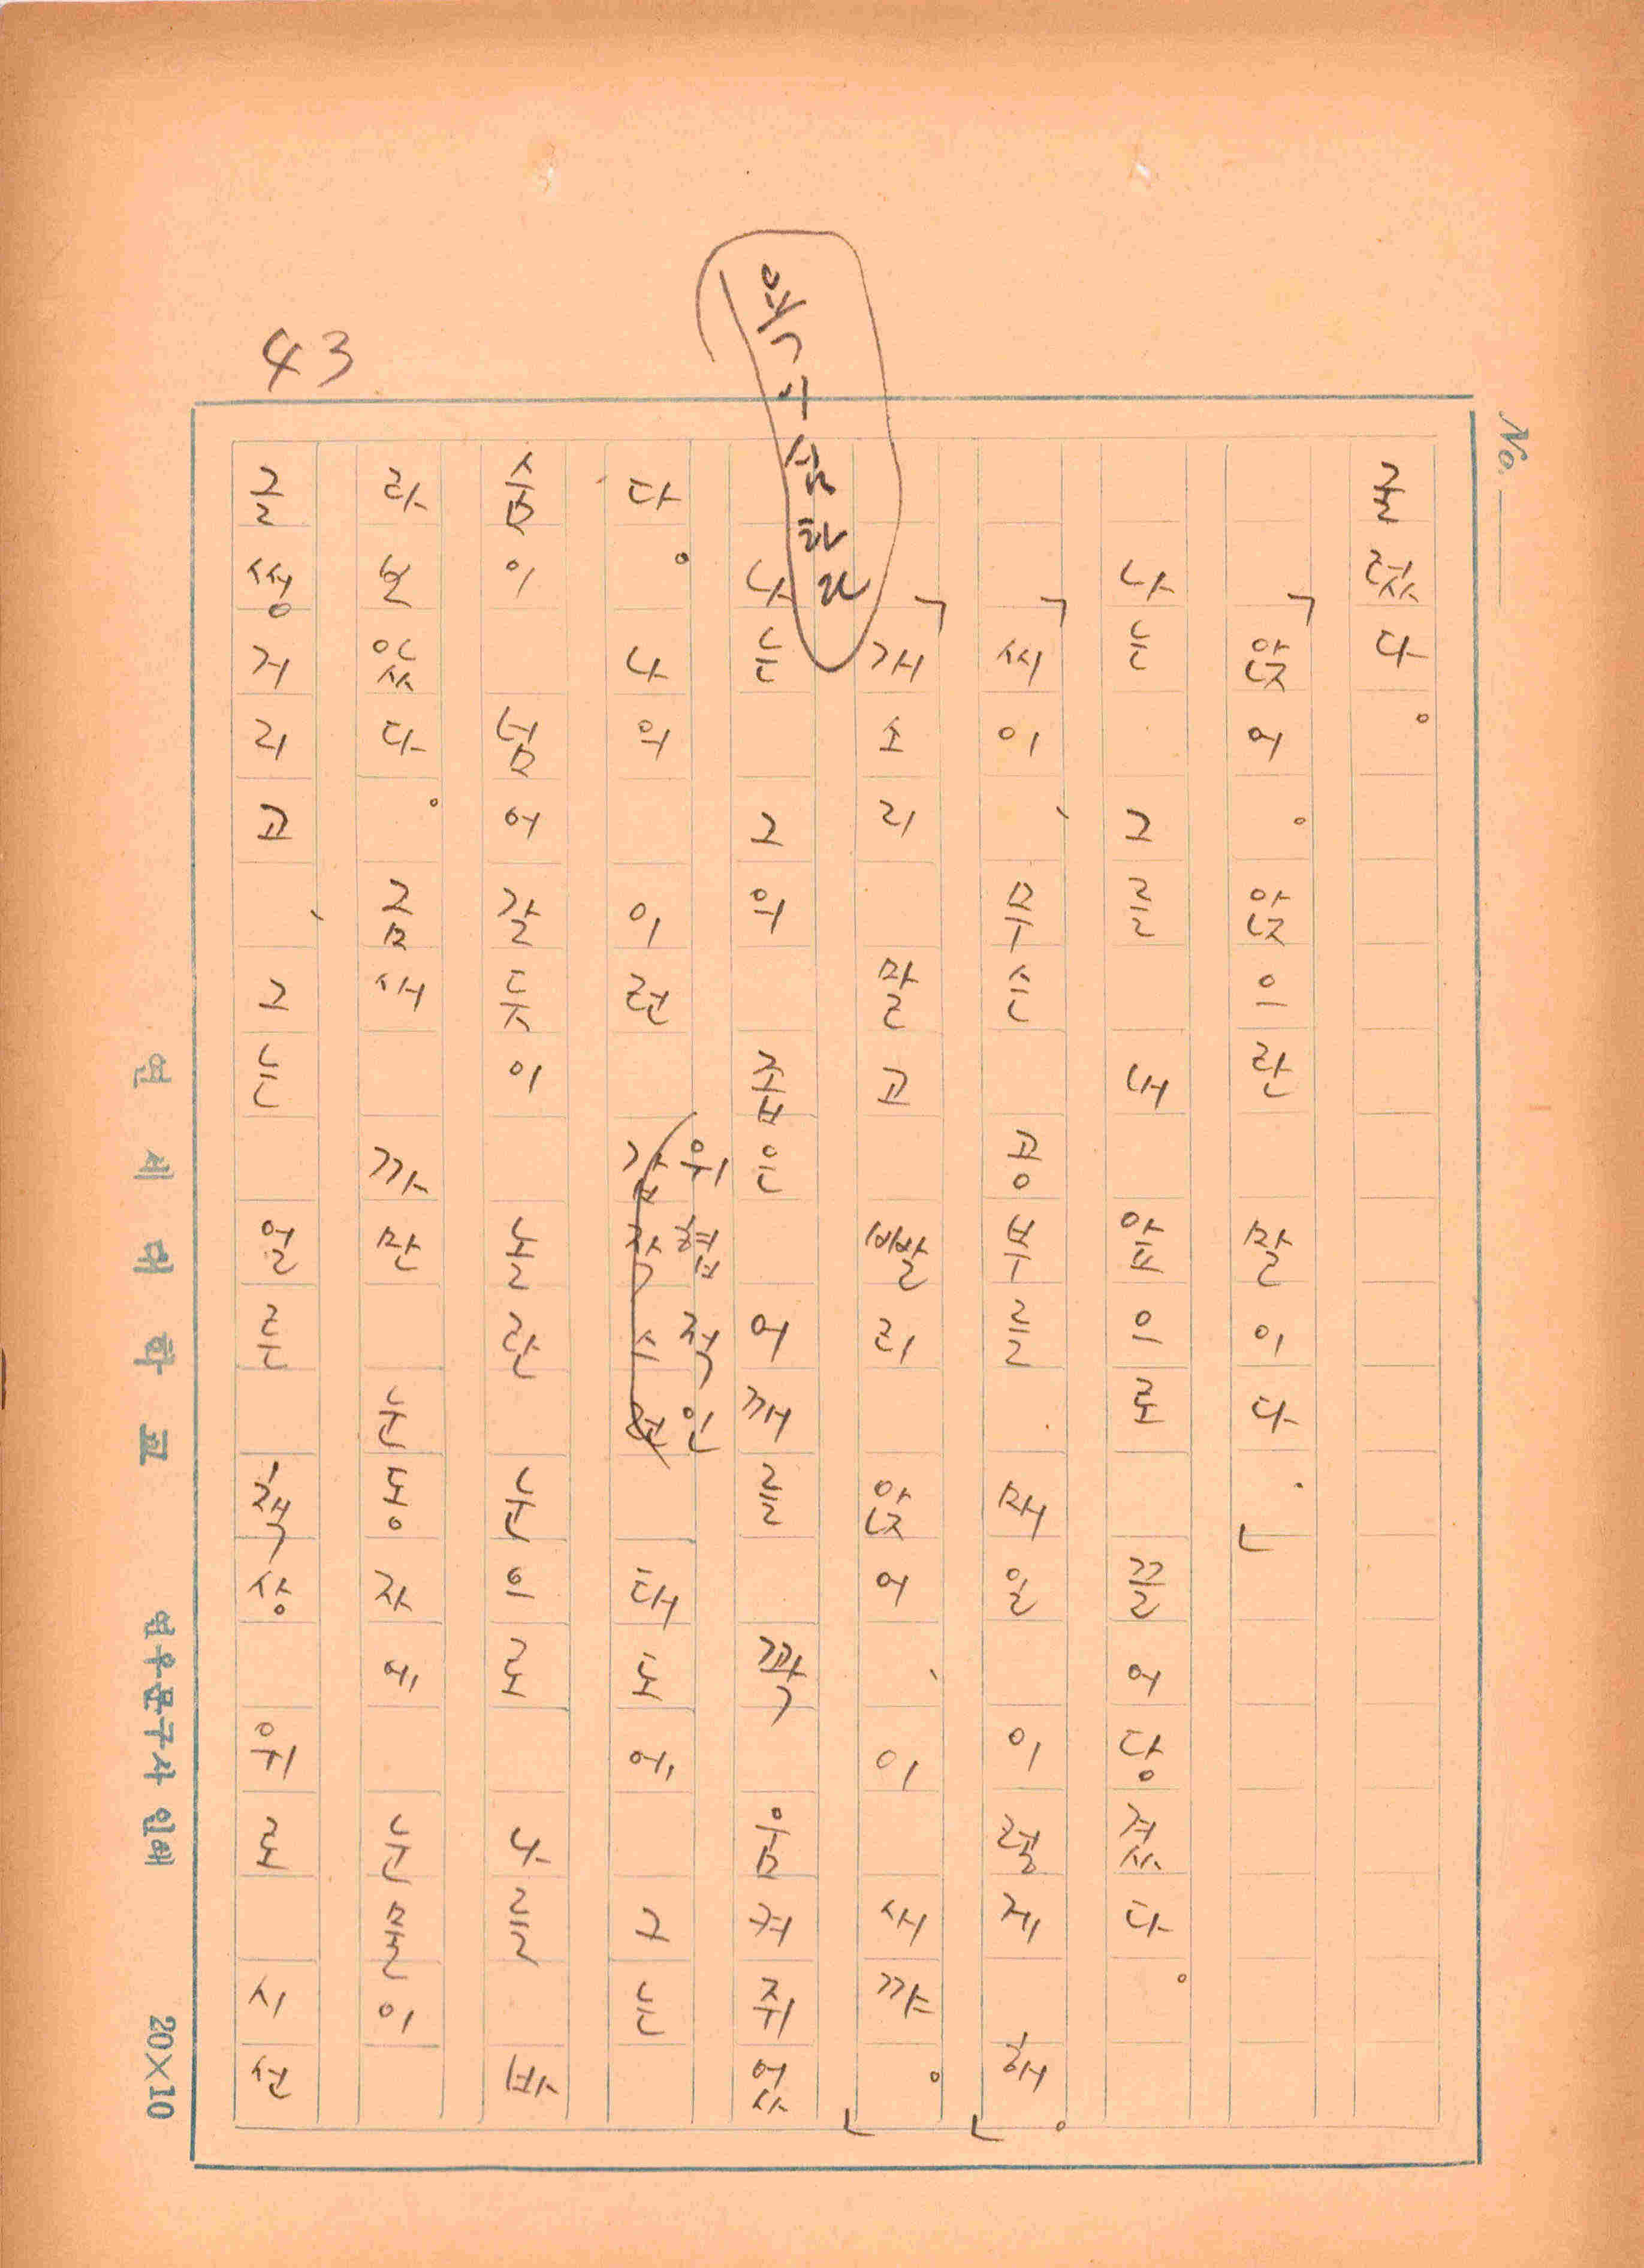 No.
43
굴렀다。
「앉어。앉으란 말이다.」
나는 그를 내 앞으로 끌어당겼다。
「쎄이、무슨 공부를 매일 이렇게 해。」
「개소리 말고 빨리 앉어、이 새꺄。」
나는 그의 좁은 어깨를 꽉 움켜쥐었
다。나의 이런 위협적인 태도에 그는
숨이 넘어갈듯이 놀란 눈으로 나를 바
라보았다。금새 까만 눈동자에 눈물이
글썽거리고、그는 얼른 책상 위로 시선
연세대학교 연우문구사 인쇄 20×10